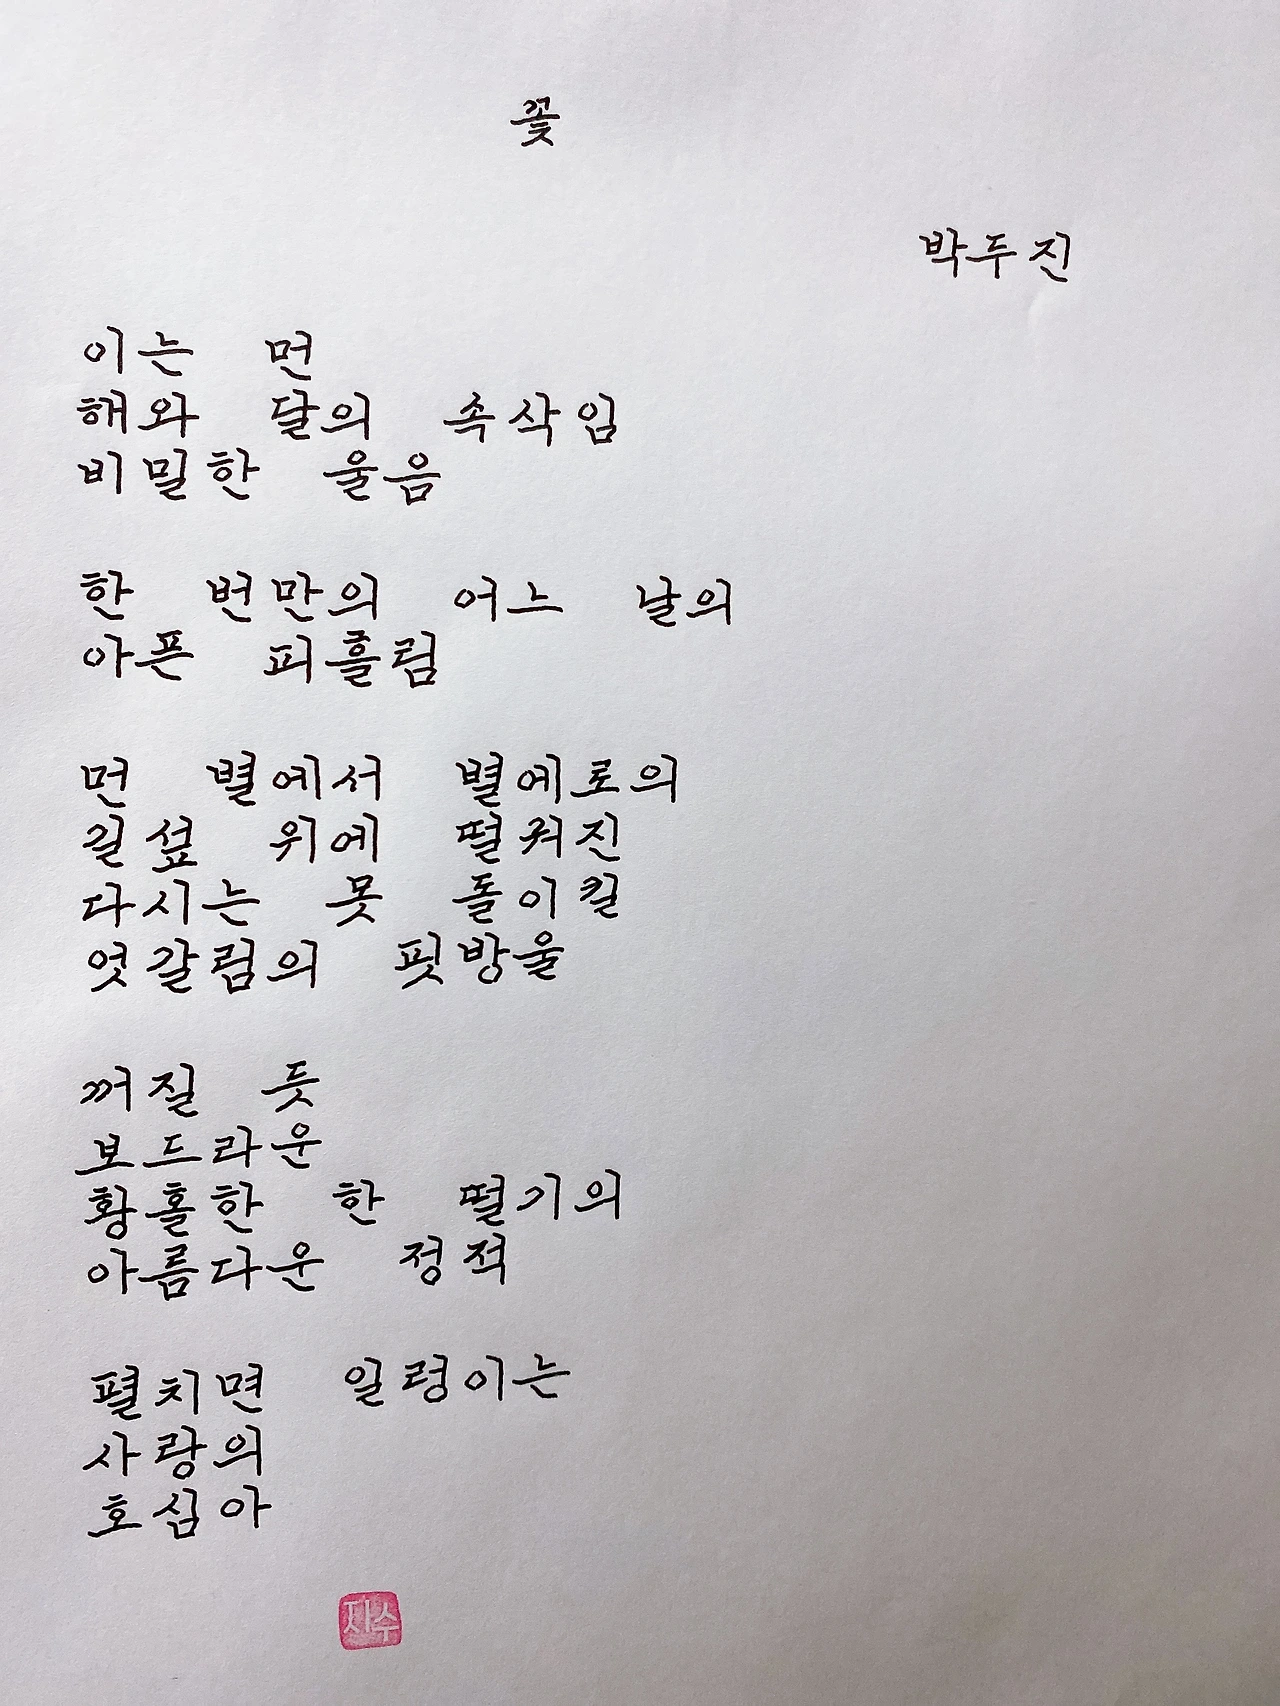 꽃
박두진
이는 먼
해와 달의 속삭임
비밀한 울음
한 번만의 어느 날의
아픈 피흘림
먼 별에서 별에로의
길섶 위에 떨궈진
다시는 못 돌이킬
엇갈림의 핏방울
꺼질 듯
보드라운
황홀한 한 떨기의
아름다운 정적
펼치면 일렁이는
사랑의
호심아
지수